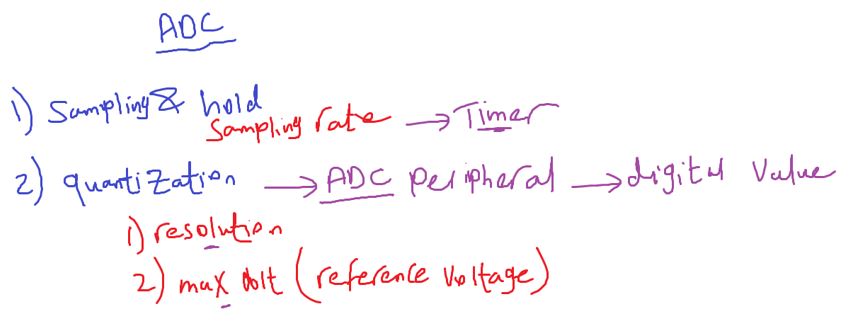 ADC
1) Sampling & hold
Sampling rate → Timer
2) quantization → ADC Peripheral → digital Value
1) resolution
2) max volt (reference voltage)